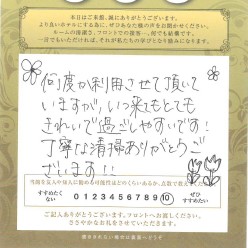 本日はご来館、誠にありがとうございます。
より良いホテルにする為に、ぜひあなた様の声をお聞かせください。
ルームの清潔さ、フロントでの接客…、何でも結構です。
一言でもいただければ、それが私たちの学びとなり励みになります。
何度か利用させて頂いて
いますが、いつ来てもとても
きれいで過ごしやすいです!
丁寧な清掃ありがとうご
ざいます!!
当館を友人や知人に勧める可能性はどのくらいあるか、点数で教えて
すすめたく
ない
0 1 2 3 4 5 6 7 8 9 10
ぜひ
すすめたい
ご記入ありがとうございます。フロントへお渡しください。
ささやかなお礼をさせていただきます。